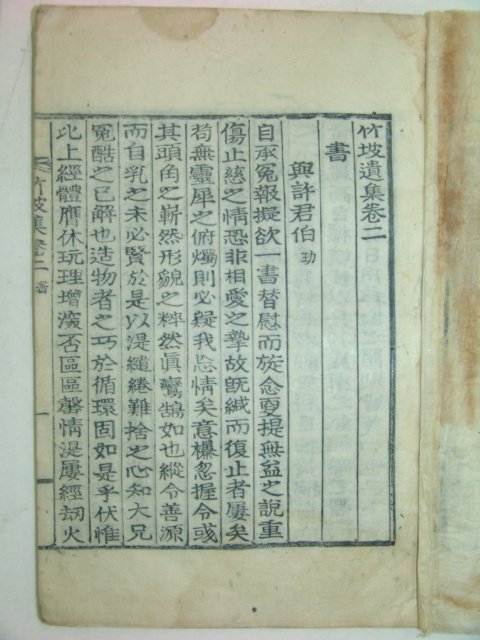 竹坡遺集卷二
書
與許君伯 玏
自承冤報擬欲一書替慰而旋念更提無益之說重
傷止慈之情恐非相愛之摯故旣緘而復止者屢矣
苟無靈犀之俯燭則必疑我忘情矣意欛忽握令彧
其頭角之嶄然形貌之粹然眞鸞鵠如也縱令善源
而自乳之未必賢於是以湜繾綣難捨之心知大兄
冤酷之已解也造物者之巧於循環固如是乎伏惟
比上經體膺休玩理增深否區區馨情湜屢經劫火
竹坡集卷二 書 一